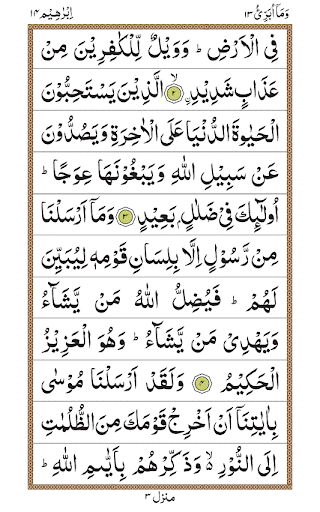 وَمَاۤ اُبَرِّئُ ۱۳ اِبْرٰهِیْم ۱۴
فِی الْاَرْضِ ؕ وَوَیْلٌ لِّلْکٰفِرِیْنَ مِنْ
عَذَابٍ شَدِیْدِ ۙ﴿۲﴾ الَّذِیْنَ یَسْتَحِبُّوْنَ
الْحَیٰوةَ الدُّنْیَا عَلَی الْاٰخِرَةِ وَیَصُدُّوْنَ
عَنْ سَبِیْلِ اللّٰهِ وَیَبْغُوْنَهَا عِوَجًا ؕ
اُولٰٓئِکَ فِیْ ضَلٰلٍۭ بَعِیْدٍ ﴿۳﴾ وَمَاۤ اَرْسَلْنَا
مِنْ رَّسُوْلٍ اِلَّا بِلِسَانِ قَوْمِهٖ لِیُبَیِّنَ
لَهُمْ ؕ فَیُضِلُّ اللّٰهُ مَنْ یَّشَآءُ
وَیَهْدِیْ مَنْ یَّشَآءُ ؕ وَهُوَ الْعَزِیْزُ
الْحَکِیْمُ ﴿۴﴾ وَلَقَدْ اَرْسَلْنَا مُوْسٰی
بِاٰیٰتِنَاۤ اَنْ اَخْرِجْ قَوْمَکَ مِنَ الظُّلُمٰتِ
اِلَی النُّوْرِ ۙ۬ وَذَکِّرْهُمْ بِاَیّٰىمِ اللّٰهِ ؕ
منزل ۳